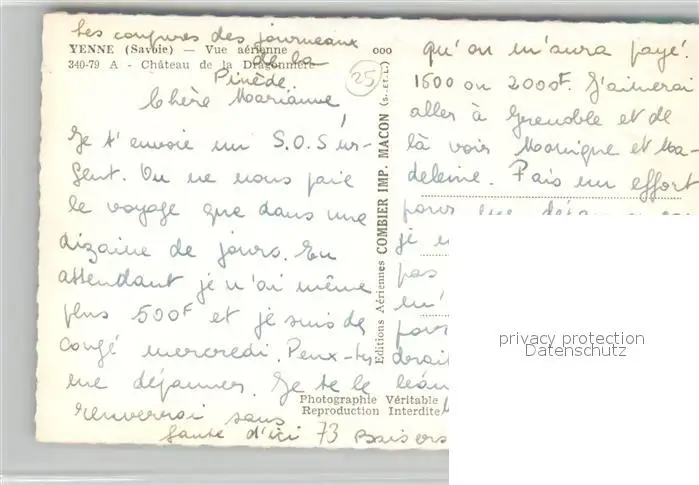 Les coupures des journeaux
de la
Pinède..
YENNE (Savoie) — Vue aérienne
340-79 A - Château de la Dragonnière
25
Chère Marianne,
Je t'envoie un S.O.S ur-
gent. On ne nous paie
le voyage que dans une
dizaine de jours. En
attendant je n'ai même
plus 500F et je suis de
congé mercredi. Peux-tu
me déjanner. Je te le
renverrai sans
faute d'ici 73 Baisers
ooo
Editions Aériennes COMBIER IMP. MACON (S.-ET-L.)
Photographie Véritable
Reproduction Interdite
qu'on m'aura payé.
1500 ou 2000F. J'aimerai
aller à Grenoble et de
là voir Monique et Ma-
deleine. Fais un effort
pour me
je
pas
m'
pour
droit
privacy protection
Datenschutz